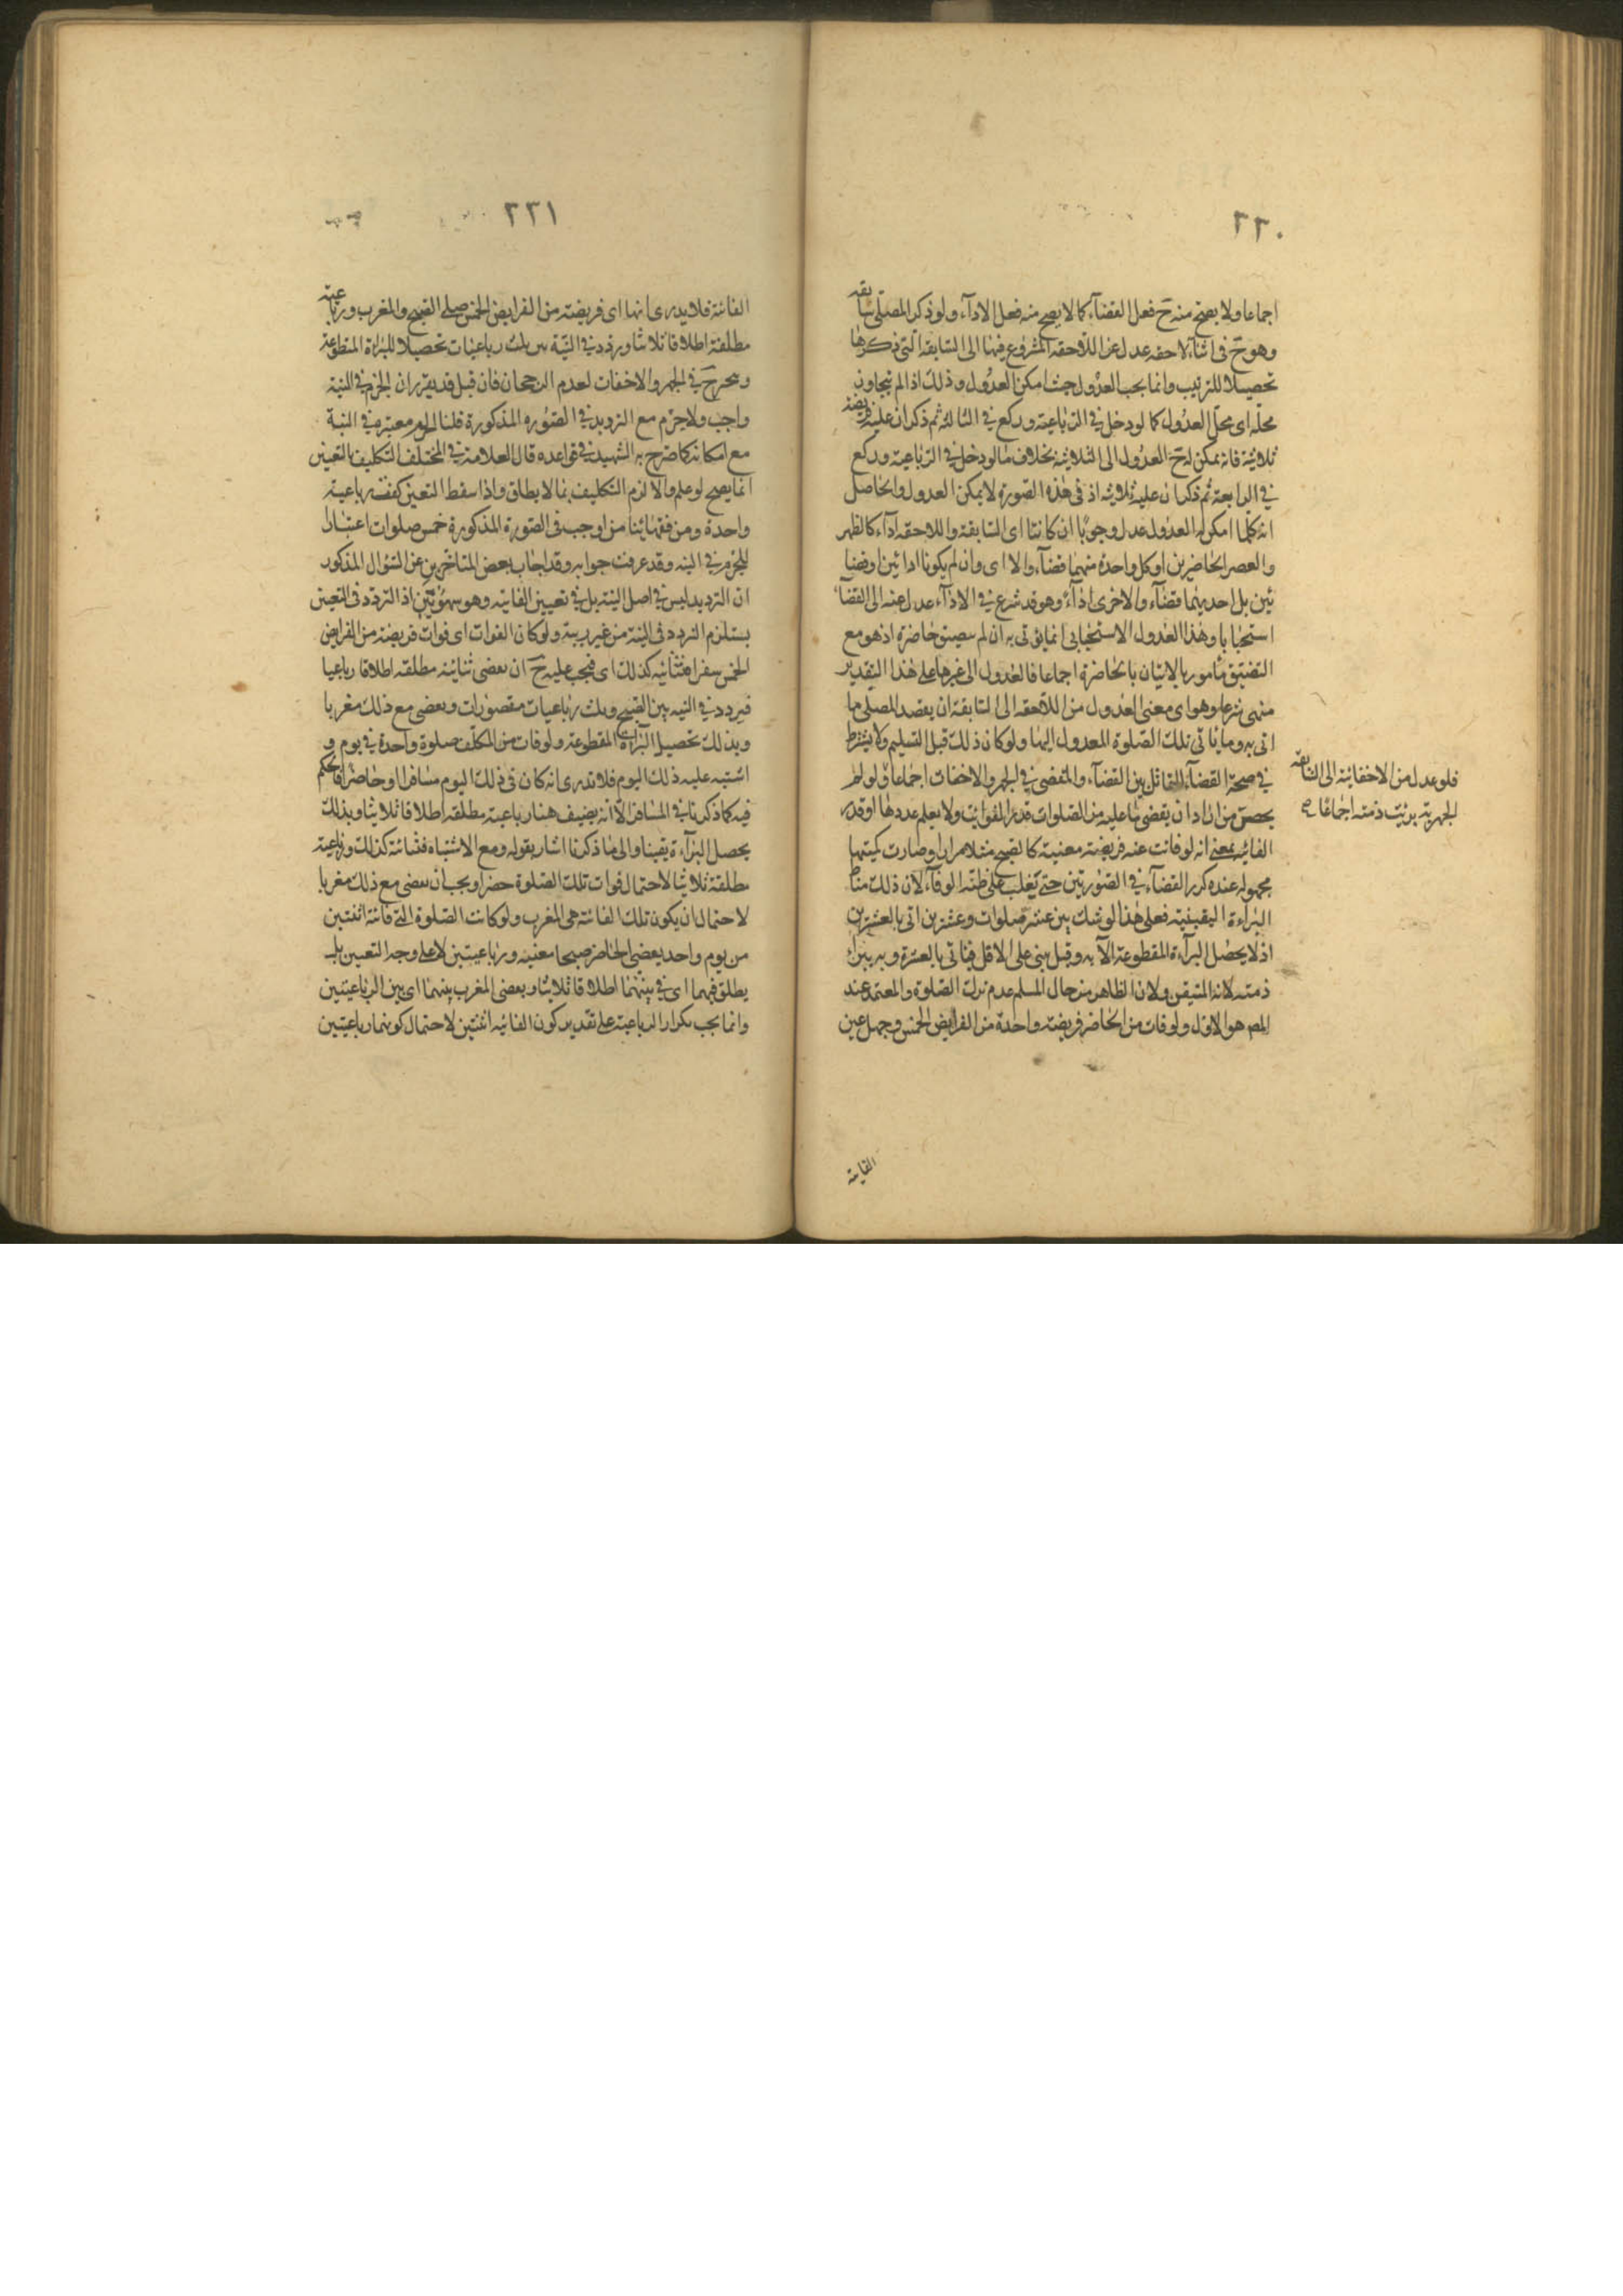 ٢٢٠
اجماعا ولا يصح منه ح فعل القضآء كما لا يصح منه فعل الادآء ولو ذكر المصلى سابقه
وهو ح فى اثنآء لاحقه عدل عن اللاحقه المشروع فيها الى السابقه التى ذكرها
تحصيلا للترتيب وانما يجب العدول حيث امكن العدول وذلك اذا لم يتجاوز
محله اى محل العدول كما لو دخل فى الرباعية وركع فى الثالثه ثم ذكر ان عليه فريضة
ثلاثية فانه يمكن له ح العدول الى الثلاثية بخلاف ما لو دخل فى الرباعية وركع
فى الرابعة ثم ذكر ان عليه ثلاثيه اذ فى هذه الصورة لا يمكن العدول والحاصل
انه كلما امكن له العدول عدل وجوبا ان كانتا اى السابقة واللاحقه ادآء كالظهر
والعصر الحاضرين او كل واحدة منهما قضآء والا اى وان لم يكونا ادائين او قضا
ئين بل احديهما قضآء والاخرى ادآء وهو قد شرع فى الادآء عدل عنه الى القضآء
استحبابا وهذا العدول الاستحبابى انما يؤتى به ان لم يتضيق حاضرة اذ هو مع
التضيق مأمور بالاتيان بالحاضرة اجماعا فالعدول الى غيرها على هذا التقدير
منهى شرعا وهو اى معنى العدول من اللاحقه الى السابقة ان يقصد المصلى ما
اتى به وما ياتى تلك الصلوة المعدول اليها ولو كان ذلك قبل التسليم ولا يشترط
فى صحة القضآء التماثل بين القضآء والمقضى فى الجهر والاخفات اجماعا ولو لم
يحص من اراد ان يقضى ما عليه من الصلوات قدر الفوائت ولا يعلم عددها او قدر
الفائته بمعنى انه لو فاتت عنه فريضة معينة كالصبح مثلا مرارا وصارت كميتها
مجهوله عنده كرر القضآء فى الصورتين حتى يغلب على ظنه الوفآء لان ذلك مناط
البراءة اليقينية فعلى هذا لو شك بين عشر صلوات وعشرين اتى بالعشرين
اذ لا يحصل البرآءة المقطوعة الا به وقيل يبنى على الاقل فياتى بالعشرة وبه يبرأ
ذمته لانه المتيقن ولان الظاهر من حال المسلم عدم ترك الصلوة والمعتمد عند
المص هو الاول ولو فات من الحاضر فريضة واحدة من الفرايض الخمس وجهل عين
فلو عدل من الاخفاتية الى السابقة
الجهرية برئت ذمته اجماعا صح
الفايتة
٢٢١
الفائتة فلا يدرى انها اى فريضة من الفرايض الخمس صلى الصبح والمغرب ورباعية
مطلقة اطلاقا ثلاثيا ويردد فى النية بين ثلث رباعيات تحصيلا للبراة المقطوعة
ويتخير ح فى الجهر والاخفات لعدم الرجحان فان قيل قد يقرر ان الجزم فى النية
واجب ولا جزم مع الترديد فى الصوره المذكورة قلنا الجزم معتبر فى النية
مع امكانه كما صرح به الشهيد فى قواعده قال العلامة فى المختلف التكليف بالتعيين
انما يصح لو علم والا لزم التكليف بما لا يطاق واذا سقط التعيين كفت رباعية
واحدة ومن فقهائنا من اوجب فى الصورة المذكورة خمس صلوات اعتبارا
للجزم فى النيه وقد عرفت جوابه وقد اجاب بعض المتاخرين عن السؤال المذكور
ان الترديد ليس فى اصل النية بل فى تعيين الفايته وهو سهو بين اذ التردد فى التعيين
يستلزم التردد فى النية من غير ريبة ولو كان الفوات اى فوات فريضة من الفرايض
الخمس سفرا فثنائيه كذلك اى فيجب عليه ح ان يقضى ثنائية مطلقه اطلاقا رباعيا
فيردد فى النيه بين الصبح وثلث رباعيات مقصورات ويقضى مع ذلك مغربا
وبذلك تحصيل البراءة المقطوعة ولو فات من المكلف صلوة واحدة فى يوم و
اشتبه عليه ذلك اليوم فلا يدرى انه كان فى ذلك اليوم مسافرا او حاضرا فالحكم
فيه كما ذكرنا فى المسافر الا انه يضيف هنا رباعية مطلقه اطلاقا ثلاثيا وبذلك
يحصل البرآءة يقينا والى ما ذكرنا اشار بقوله ومع الاشتباه فثنائية كذلك ورباعية
مطلقة ثلاثيا لاحتمال فوات تلك الصلوة حضرا ويجب ان يقضى مع ذلك مغربا
لاحتمال ان يكون تلك الفائتة هى المغرب ولو كانت الصلوة التى فائتة اثنتين
من يوم واحد يقضى الحاضر صبحا معينه ورباعيتين لا على وجه التعيين بل
يطلق فيهما اى فى بينهما اطلاقا ثلاثيا ويقضى المغرب بينهما اى بين الرباعيتين
وانما يجب تكرار الرباعية على تقدير كون الفائته اثنتين لاحتمال كونهما رباعيتين